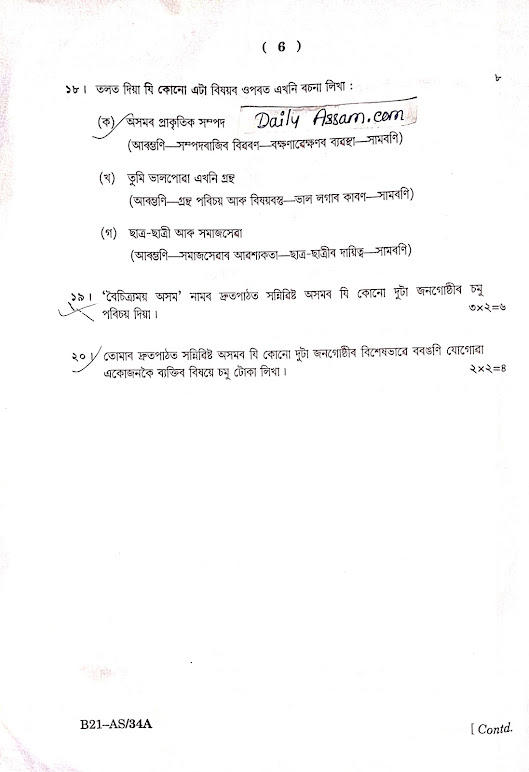 ( 6 )
১৮। তলত দিয়া যি কোনো এটা বিষয়ৰ ওপৰত এখনি ৰচনা লিখা : ৮
(ক) অসমৰ প্ৰাকৃতিক সম্পদ Daily Assam.com
(আৰম্ভণি—সম্পদৰাজিৰ বিৱৰণ—ৰক্ষণাৱেক্ষণৰ ব্যৱস্থা—সামৰণি)
(খ) তুমি ভালপোৱা এখনি গ্ৰন্থ
(আৰম্ভণি—গ্ৰন্থ পৰিচয় আৰু বিষয়বস্তু—ভাল লগাৰ কাৰণ—সামৰণি)
(গ) ছাত্ৰ-ছাত্ৰী আৰু সমাজসেৱা
(আৰম্ভণি—সমাজসেৱাৰ আৱশ্যকতা—ছাত্ৰ-ছাত্ৰীৰ দায়িত্ব—সামৰণি)
১৯। ‘বৈচিত্ৰ্যময় অসম’ নামৰ দ্ৰুতপাঠত সন্নিৱিষ্ট অসমৰ যি কোনো দুটা জনগোষ্ঠীৰ চমু
পৰিচয় দিয়া। ৩×২=৬
২০। তোমাৰ দ্ৰুতপাঠত সন্নিৱিষ্ট অসমৰ যি কোনো দুটা জনগোষ্ঠীৰ বিশেষভাৱে বৰঙণি যোগোৱা
একোজনকৈ ব্যক্তিৰ বিষয়ে চমু টোকা লিখা। ২×২=৪
B21–AS/34A
[ Contd.